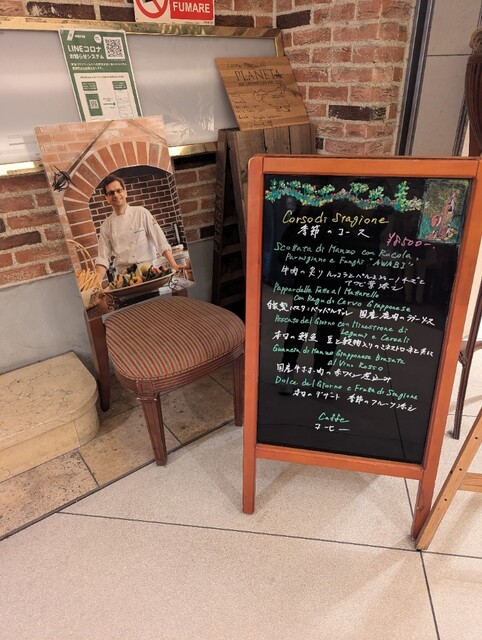 FUMARE
LINEコロナ
お知らせシステム
PLANETA
Corso di Stagione
季節のコース
¥8500-
Scottata di Manzo con Rucola,
Parmigiano e Funghi "AWABI"
牛肉の炙り ルッコラとパルミジャーノチーズと
アワビ茸添え
Pappardelle Fatta al Mattarello
con Ragù di Cervo Giapponese
国産 鹿肉のラグーソース
Pescato del Giorno con Minestrone di
Legumi e Cereali
本日の鮮魚 豆と穀物入りのミネストローネと共に
Guancia di Manzo Giapponese Brasata
al Vino Rosso
国産牛ホホ肉の赤ワイン煮込み
Dolce del Giorno e Frutta di Stagione
本日のデザート 季節のフルーツ添え
Caffe
コーヒー